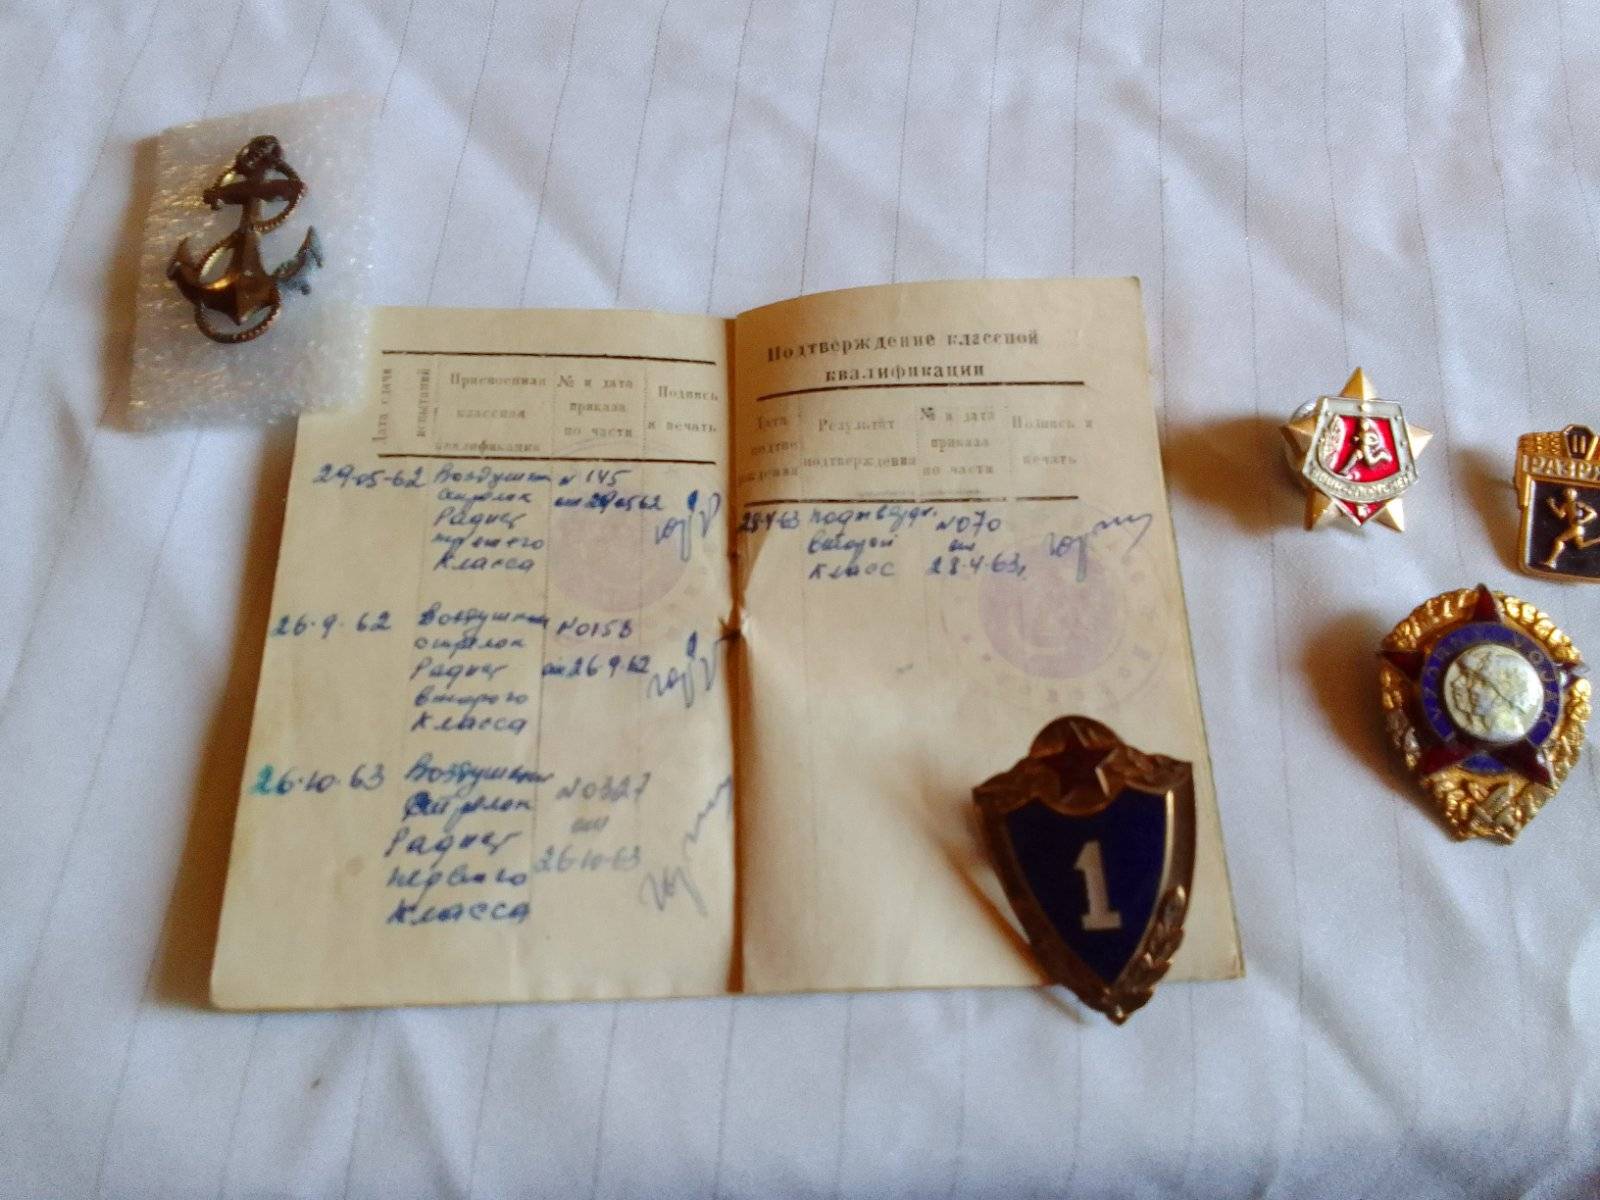 Дата сдачи испытаний
Присвоенная классная квалификация
№ и дата приказа по части
Подпись и печать
29-05-62 Воздушный стрелок Радист третьего Класса
N 145 от 290562
26.9.62 Воздушный стрелок Радист второго Класса
N0158 от 26.9.62
26.10.63 Воздушный стрелок Радист первого Класса
N0327 от 26.10.63
Подтверждение классной
квалификации
Дата подтверждения
Результат подтверждения
№ и дата приказа по части
Подпись и печать
28.4.63 подтвердил Второй Класс
N070 от 28.4.63г
1
ВОИН-СПОРТСМЕН
II
РАЗРЯ
VZORNÝ VOJÁK